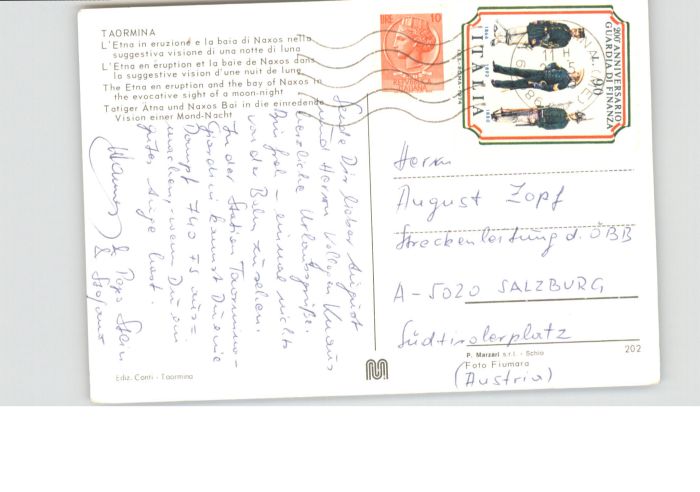 TAORMINA
L'Etna in eruzione e la baia di Naxos nella
suggestiva visione di una notte di luna
L'Etna en eruption et la baie de Naxos dans
la suggestive vision d'une nuit de lune
The Etna en eruption and the bay of Naxos in
the evocative sight of a moon-night
Tatiger Ätna und Naxos Bai in die einredende
Vision einer Mond-Nacht
LIRE 10
ITALIANA
200° ANNIVERSARIO
GUARDIA DI FINANZA
L. 90
ITALIA
Sende Dir lieber August
und Herrn Kollegen
herzliche Urlaubsgrüße.
Bin froh - einmal nichts
von der Bahn zu sehen.
In der Station Taormina-
Giardini kannst Du eine
Dampf 740 75 aus-
machen, wenn Du ein
gutes Auge hast.
& Papa
& Stefanie
Herrn
August Zopf
Streckenleitung d. ÖBB
A-5020 SALZBURG
Südtirolerplatz
(Austria)
P. Marzari s.r.l. - Schio
Foto Fiumara
202
Ediz. Conti - Taormina